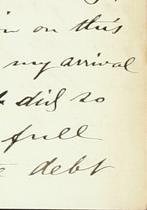 on this
my arrival
did so
full
debt